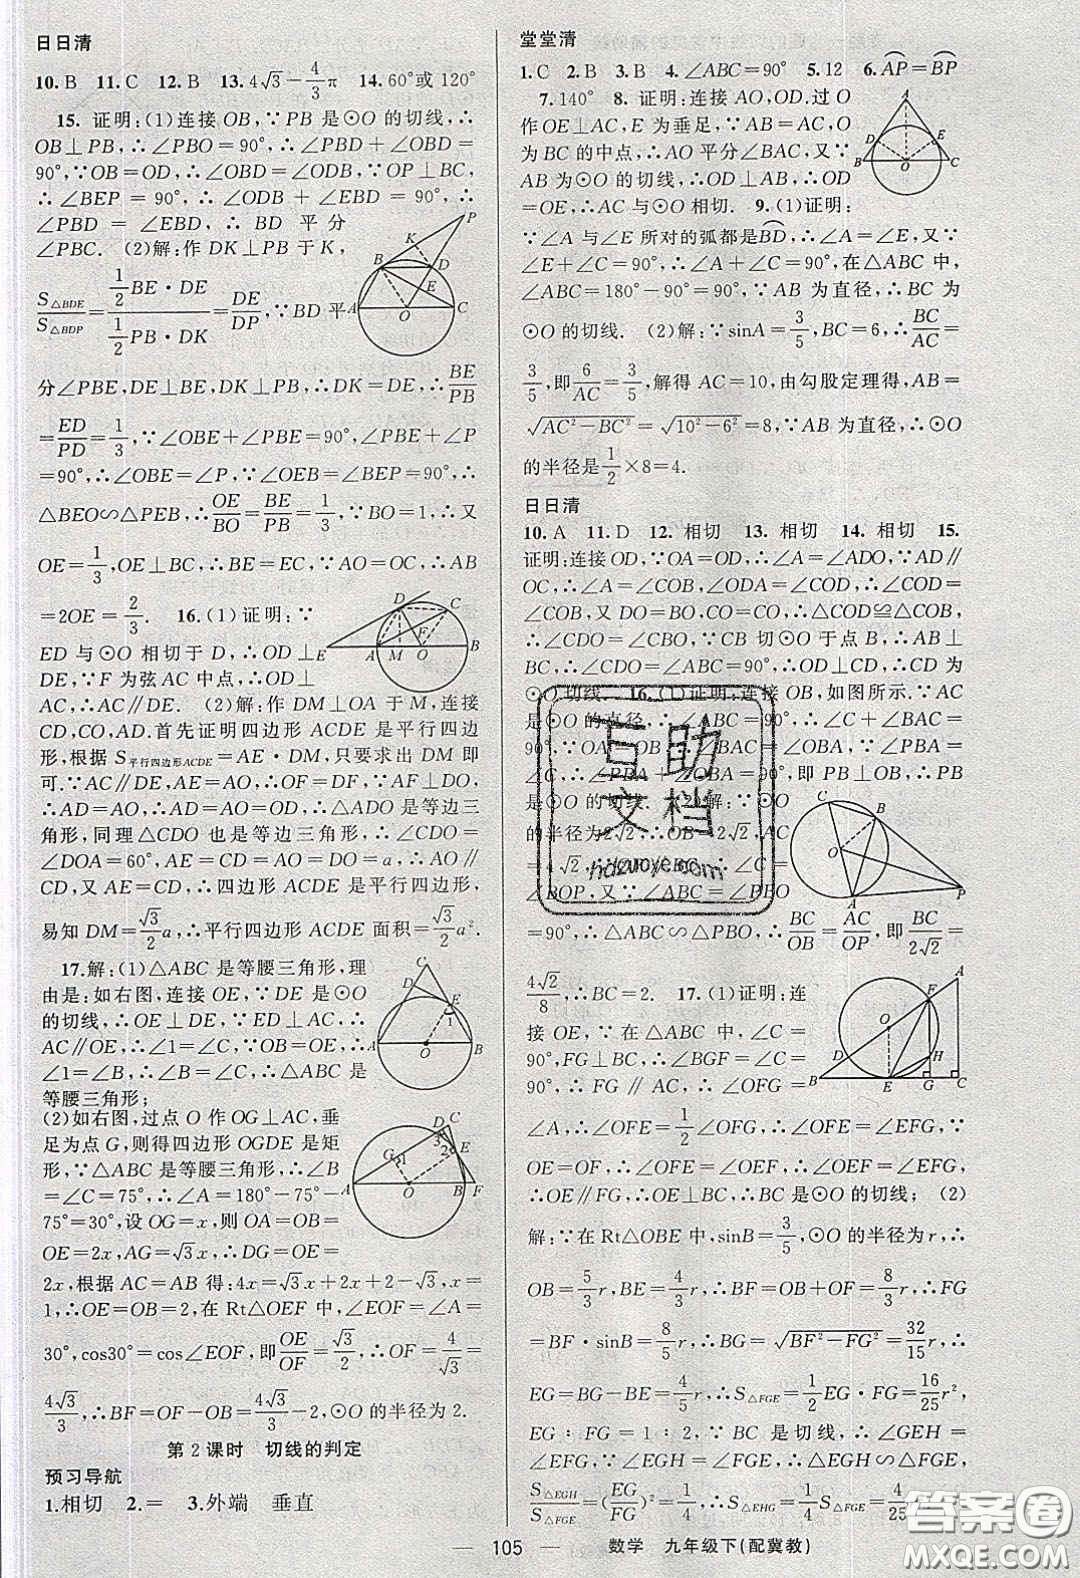 日日清
10. B　11. C　12. B　13. 4√3－4/3π　14. 60°或 120°
15. 证明:(1)连接 OB,∵PB 是⊙O 的切线,∴
OB⊥PB,∴∠PBO＝90°,∴∠PBD＋∠OBD＝
90°,∵OB＝OD,∴∠OBD＝∠ODB,∵OP⊥BC,
∴∠BEP＝90°,∴∠ODB＋∠EBD＝90°,∴
∠PBD＝∠EBD,∴BD 平分
∠PBC. (2)解:作 DK⊥PB 于 K,
S△BDE/S△BDP＝(1/2BE·DE)/(1/2PB·DK)＝DE/DP,∵BD 平
分∠PBE,DE⊥BE,DK⊥PB,∴DK＝DE,∴BE/PB
＝ED/PD＝1/3,∵∠OBE＋∠PBE＝90°,∠PBE＋∠P
＝90°,∴∠OBE＝∠P,∵∠OEB＝∠BEP＝90°,∴
△BEO∽△PEB,∴OE/BO＝BE/PB＝1/3,∵BO＝1,∴
OE＝1/3,∵OE⊥BC,∴BE＝EC,∵AO＝OB,∴AC
＝2OE＝2/3.　16. (1)证明:∵
ED 与⊙O 相切于 D,∴OD⊥
DE,∵F 为弦AC 中点,∴OD⊥
AC,∴AC∥DE. (2)解:作 DM⊥OA 于 M,连接
CD,CO,AD.首先证明四边形 ACDE 是平行四边
形,根据 S平行四边形ACDE＝AE·DM,只要求出 DM 即
可.∵AC∥DE,AE＝AO,∴OF＝DF,∵AF⊥DO,
∴AD＝AO,∴AD＝AO＝OD,∴△ADO 是等边三
角形,同理△CDO 也是等边三角形,∴∠CDO＝
∠DOA＝60°,AE＝CD＝AD＝AO＝DO＝a,∴AO∥
CD,又 AE＝CD,∴四边形 ACDE 是平行四边形,
易知 DM＝√3/2a,∴平行四边形 ACDE 面积＝√3/2a².
17.解:(1)△ABC 是等腰三角形,理
由是:如右图,连接 OE,∵DE 是⊙O
的切线,∴OE⊥DE,∵ED⊥AC,∴
AC∥OE,∴∠1＝∠C,∵OB＝OE,∴
∠1＝∠B,∴∠B＝∠C,∴△ABC 是
等腰三角形;
(2)如右图,过点 O 作 OG⊥AC,垂
足为点 G,则得四边形 OGDE 是矩
形,∵△ABC 是等腰三角形,∴∠B
＝∠C＝75°,∴∠A＝180°－75°－
75°＝30°,设 OG＝x,则 OA＝OB＝
OE＝2x,AG＝√3x,∴DG＝OE＝
2x,根据 AC＝AB 得:4x＝√3x＋2x＋2－√3,x＝1,
∴OE＝OB＝2,在 Rt△OEF 中,∠EOF＝∠A＝
30°,cos30°＝cos∠EOF,即OE/OF＝√3/2,∴OF＝4/√3＝
4√3/3,∴BF＝OF－OB＝4√3/3－2,⊙O 的半径为 2.
第 2 课时　切线的判定
预习导航
1.相切　2.＝　3.外端　垂直
堂堂清
1.C　2.B　3.B　4.∠ABC＝90°　5.12　6.AP＝BP
7.140°　8. 证明:连接 AO,OD.过 O
作 OE⊥AC,E 为垂足,∵AB＝AC,O
为 BC 的中点,∴AO 平分∠BAC,又∵
AB 为⊙O 的切线,∴OD⊥AB,∴OD
＝OE,∴AC 与⊙O 相切.　9.(1)证明:
∵∠A 与∠E 所对的弧都是BD,∴∠A＝∠E,又∵
∠E＋∠C＝90°,∴∠A＋∠C＝90°,在△ABC 中,
∠ABC＝180°－90°＝90°,∵AB 为直径,∴BC 为
⊙O 的切线. (2)解:∵sinA＝3/5,BC＝6,∴BC/AC＝
3/5,即6/AC＝3/5,解得 AC＝10,由勾股定理得,AB＝
√AC²－BC²＝√10²－6²＝8,∵AB 为直径,∴⊙O
的半径是1/2×8＝4.
日日清
10. A　11. D　12. 相切　13. 相切　14. 相切　15.
证明:连接 OD,∵OA＝OD,∴∠A＝∠ADO,∵AD∥
OC,∴∠A＝∠COB,∠ADO＝∠COD,∴∠COB＝
∠COD,又 DO＝BO,CO＝CO,∴△COD≌△COB,
∴∠CDO＝∠CBO,∵CB 切⊙O 于点 B,∴AB⊥
BC,∴∠CBO＝90°,∴∠CDO＝90°,∴CD 为
⊙O 切线.　16. (1)证明:连接 OB,如图所示.∵AC
是⊙O 的直径,∴∠ABC＝90°,∴∠C＋∠BAC＝
90°,∵OA＝OB,∴∠BAC＝∠OBA,∵∠PBA＝
∠C,∴∠PBA＋∠OBA＝90°,即 PB⊥OB,∴PB
是⊙O 的切线. (2)解:∵⊙O
的半径为2√2,∴OB＝2√2,AC
＝4√2,∵OP∥BC,∴∠C＝
∠BOP,又∵∠ABC＝∠PBO
＝90°,∴△ABC∽△PBO,∴BC/OB＝AC/OP,即BC/2√2＝
4√2/8,∴BC＝2.　17. (1)证明:连
接 OE,∵在△ABC 中,∠C＝
90°,FG⊥BC,∴∠BGF＝∠C＝
90°,∴FG∥AC,∴∠OFG＝
∠A,∴∠OFE＝1/2∠OFG,∴∠OFE＝∠EFG,∵
OE＝OF,∴∠OFE＝∠OEF,∴∠OEF＝∠EFG,
∴OE∥FG,∴OE⊥BC,∴BC 是⊙O 的切线; (2)
解:∵在 Rt△OBE 中,sinB＝3/5,⊙O 的半径为 r,∴
OB＝5/3r,BE＝4/3r,∴BF＝OB＋OF＝8/3r,∴FG
＝BF·sinB＝8/5r,∴BG＝√BF²－FG²＝32/15r,∴
EG＝BG－BE＝4/5r,∴S△FGE＝1/2EG·FG＝16/25r²,
EG∶FG＝1∶2,∵BC 是切线,∴∠GEH＝
∠EFG,∵∠EGH＝∠FGE,∴△EGH∽△FGE,∴
S△EGH/S△FGE＝(EG/FG)²＝1/4,∴S△EHG＝1/4S△FGE＝4/25
105
数学　九年级下(配冀教)
互助
文档
hdzuoye.com
答案圈
MXQE.COM